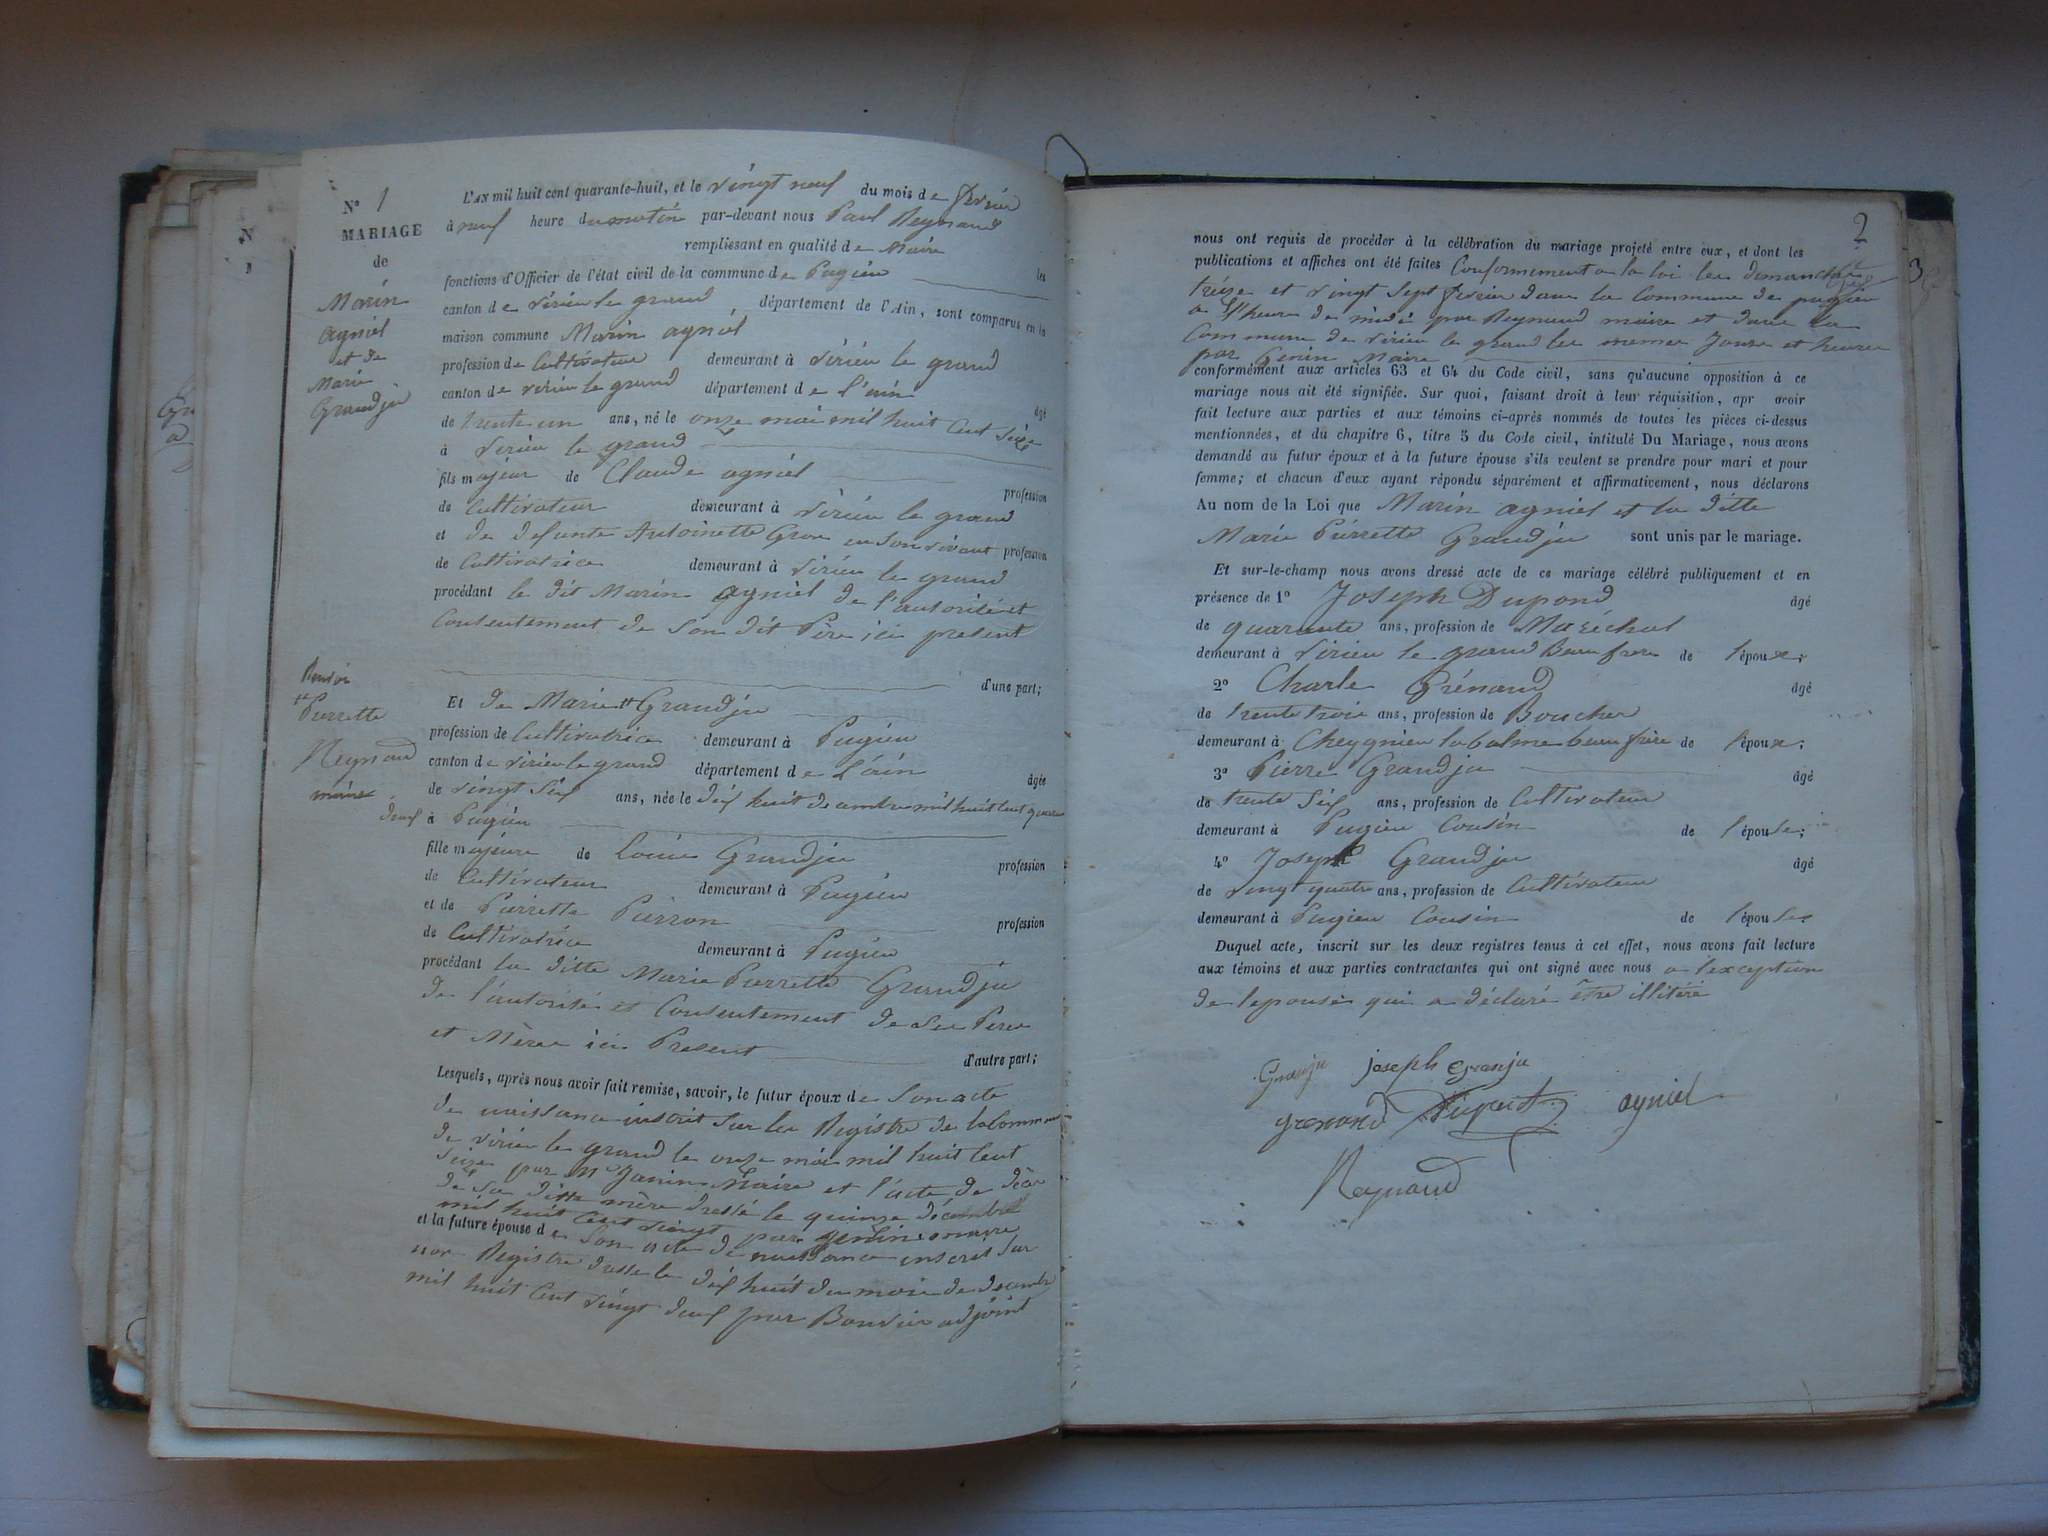 N° 1
MARIAGE
de
Marin
agniel
et de
Marie
Grandju
L'AN mil huit cent quarante-huit, et le vingt neuf du mois de février
à neuf heure du matin par-devant nous Paul Reynaud
remplissant en qualité de Maire les
fonctions d'Officier de l'état civil de la commune de Pugieu
canton de virieu le grand département de l'Ain, sont comparus en la
maison commune Marin agniel
profession de Cultivateur demeurant à virieu le grand
canton de virieu le grand département de l'ain âgé
de trente un ans, né le onze mai mil huit Cent Seize
à virieu le grand
fils majeur de Claude agniel profession
de Cultivateur demeurant à virieu le grand
et de defunte Antoinette en Son vivant profession
de Cultivatrice demeurant à virieu le grand
procédant le dit Marin agniel de l'autorité et
Consentement de Son dit Père ici présent
d'une part;
Renvoi
Pierrette
Reynaud
maire
Et de Marie Grandju
profession de Cultivatrice demeurant à Pugieu
canton de virieu le grand département de L'ain âgée
de vingt Six ans, née le dix huit décembre mil huit Cent vingt
deux à Pugieu
fille majeure de Louis Grandju profession
de Cultivateur demeurant à Pugieu
et de Pierrette Pierron profession
de Cultivatrice demeurant à Pugieu
procédant la ditte Marie Pierrette Grandju
de l'autorité et Consentement de Ses Père
et Mère ici Présent d'autre part;
Lesquels, après nous avoir fait remise, savoir, le futur époux de Son acte
de naissance inscrit Sur les Registre de la Commune
de virieu le grand le onze mai mil huit Cent
Seize par Mr Janin Maire et l'acte de décès
de Sa ditte mère dressé le quinze décembre
mil huit Cent vingt par maire
et la future épouse de Son acte de naissance inscrit Sur
nos Registre dressé le dix huit du mois de décembre
mil huit Cent vingt deux par Bonvier adjoint
2
3
nous ont requis de procéder à la célébration du mariage projeté entre eux, et dont les
publications et affiches ont été faites Conformement a la loi les dimanche
treize et vingt Sept février dans la Commune de pugieu
a l'heure de midi par Reynaud maire et dans la
Commune de virieu le grand les memes Jours et heures
par Genin Maire
conformément aux articles 63 et 64 du Code civil, sans qu'aucune opposition à ce
mariage nous ait été signifiée. Sur quoi, faisant droit à leur réquisition, apr avoir
fait lecture aux parties et aux témoins ci-après nommés de toutes les pièces ci-dessus
mentionnées, et du chapitre 6, titre 5 du Code civil, intitulé Du Mariage, nous avons
demandé au futur époux et à la future épouse s'ils veulent se prendre pour mari et pour
femme; et chacun d'eux ayant répondu séparément et affirmativement, nous déclarons
Au nom de la Loi que Marin agniel et la ditte
Marie Pierrette Grandju sont unis par le mariage.
Et sur-le-champ nous avons dressé acte de ce mariage célébré publiquement et en
présence de 1° Joseph Dupond âgé
de quarante ans, profession de Maréchal
demeurant à virieu le grand Beau frere de l'époux;
2° Charle Grénaud âgé
de trente trois ans, profession de Boucher
demeurant à Cheygnieu labalme beau frère de l'époux;
3° Pierre Grandju âgé
de trente Six ans, profession de Cultivateur
demeurant à Pugieu Cousin de l'épouse;
4° Joseph Grandju âgé
de vingt quatre ans, profession de Cultivateur
demeurant à Pugieu Cousin de l'épouse
Duquel acte, inscrit sur les deux registres tenus à cet effet, nous avons fait lecture
aux témoins et aux parties contractantes qui ont signé avec nous a l'exception
de lepouse qui a déclaré être illitéré
Granju joseph Granju
grenand Dupont agniel
Reynaud